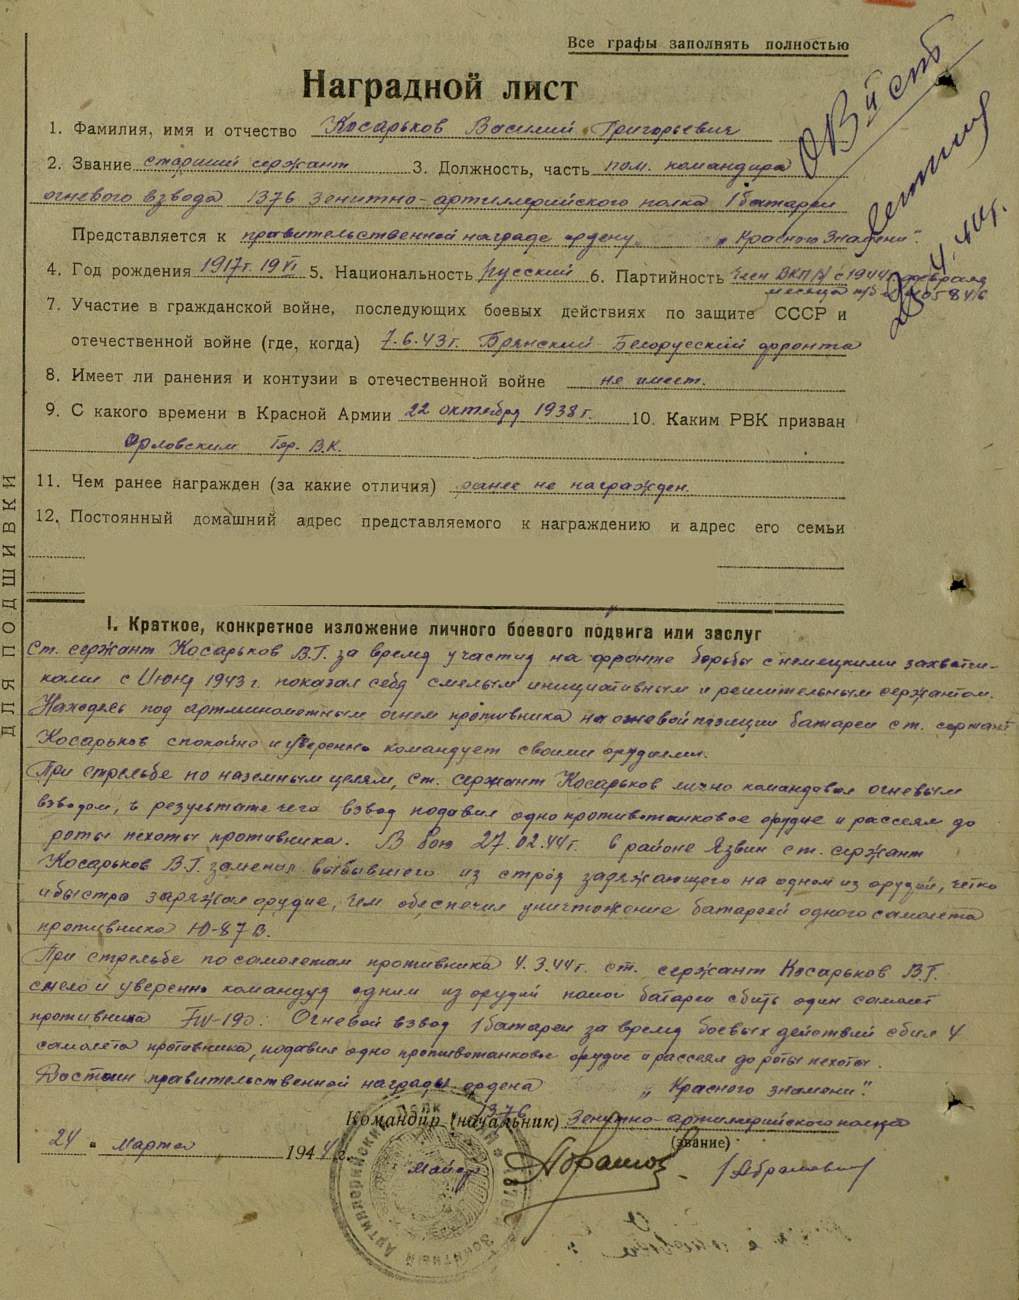 Все графы заполнять полностью
Наградной лист
1. Фамилия, имя и отчество Косарьков Василий Григорьевич
2. Звание старший сержант 3. Должность, часть пом. командира
огневого взвода 1376 зенитно-артиллерийского полка 1 батареи
Представляется к правительственной награде ордену „Красного Знамени".
4. Год рождения 1917г. 19 VI 5. Национальность русский 6. Партийность член ВКП(б) с 1944 февраля
месяца п/б
7. Участие в гражданской войне, последующих боевых действиях по защите СССР и
отечественной войне (где, когда) 7.6.43г. Брянский Белорусский фронта
8. Имеет ли ранения и контузии в отечественной войне не имеет.
9. С какого времени в Красной Армии 22 октября 1938г. 10. Каким РВК призван
Орловским Гор. В.К.
11. Чем ранее награжден (за какие отличия) ранее не награжден.
12. Постоянный домашний адрес представляемого к награждению и адрес его семьи
ДЛЯ ПОДШИВКИ
I. Краткое, конкретное изложение личного боевого подвига или заслуг
Ст. сержант Косарьков В.Г. за время участия на фронте борьбы с немецкими захватчи-
ками с Июня 1943г. показал себя смелым инициативным и решительным сержантом.
Находясь под артминометным огнем противника на огневой позиции батареи ст. сержант
Косарьков спокойно и уверенно командует своими орудиями.
При стрельбе по наземным целям, ст. сержант Косарьков лично командовал огневым
взводом, в результате чего взвод подавил одно противотанковое орудие и рассеял до
роты пехоты противника. В бою 27.02.44г. в районе Язвин ст. сержант
Косарьков В.Г. заменил выбывшего из строя заряжающего на одном из орудий, четко
и быстро заряжал орудие, чем обеспечил уничтожение батареей одного самолета
противника Ю-87 В.
При стрельбе по самолетам противника 4.3.44г. ст. сержант Косарьков В.Г.
смело и уверенно командуя одним из орудий помог батареи сбить один самолет
противника FW-190. Огневой взвод 1 батареи за время боевых действий сбил 4
самолета противника, подавил одно противотанковое орудие и рассеял до роты пехоты.
Достоин правительственной награды ордена „Красного знамени".
Командир (начальник) 1376 Зенитно-артиллерийского полка
(звание)
24 " марта 1944 г.
майор /Абрамович/